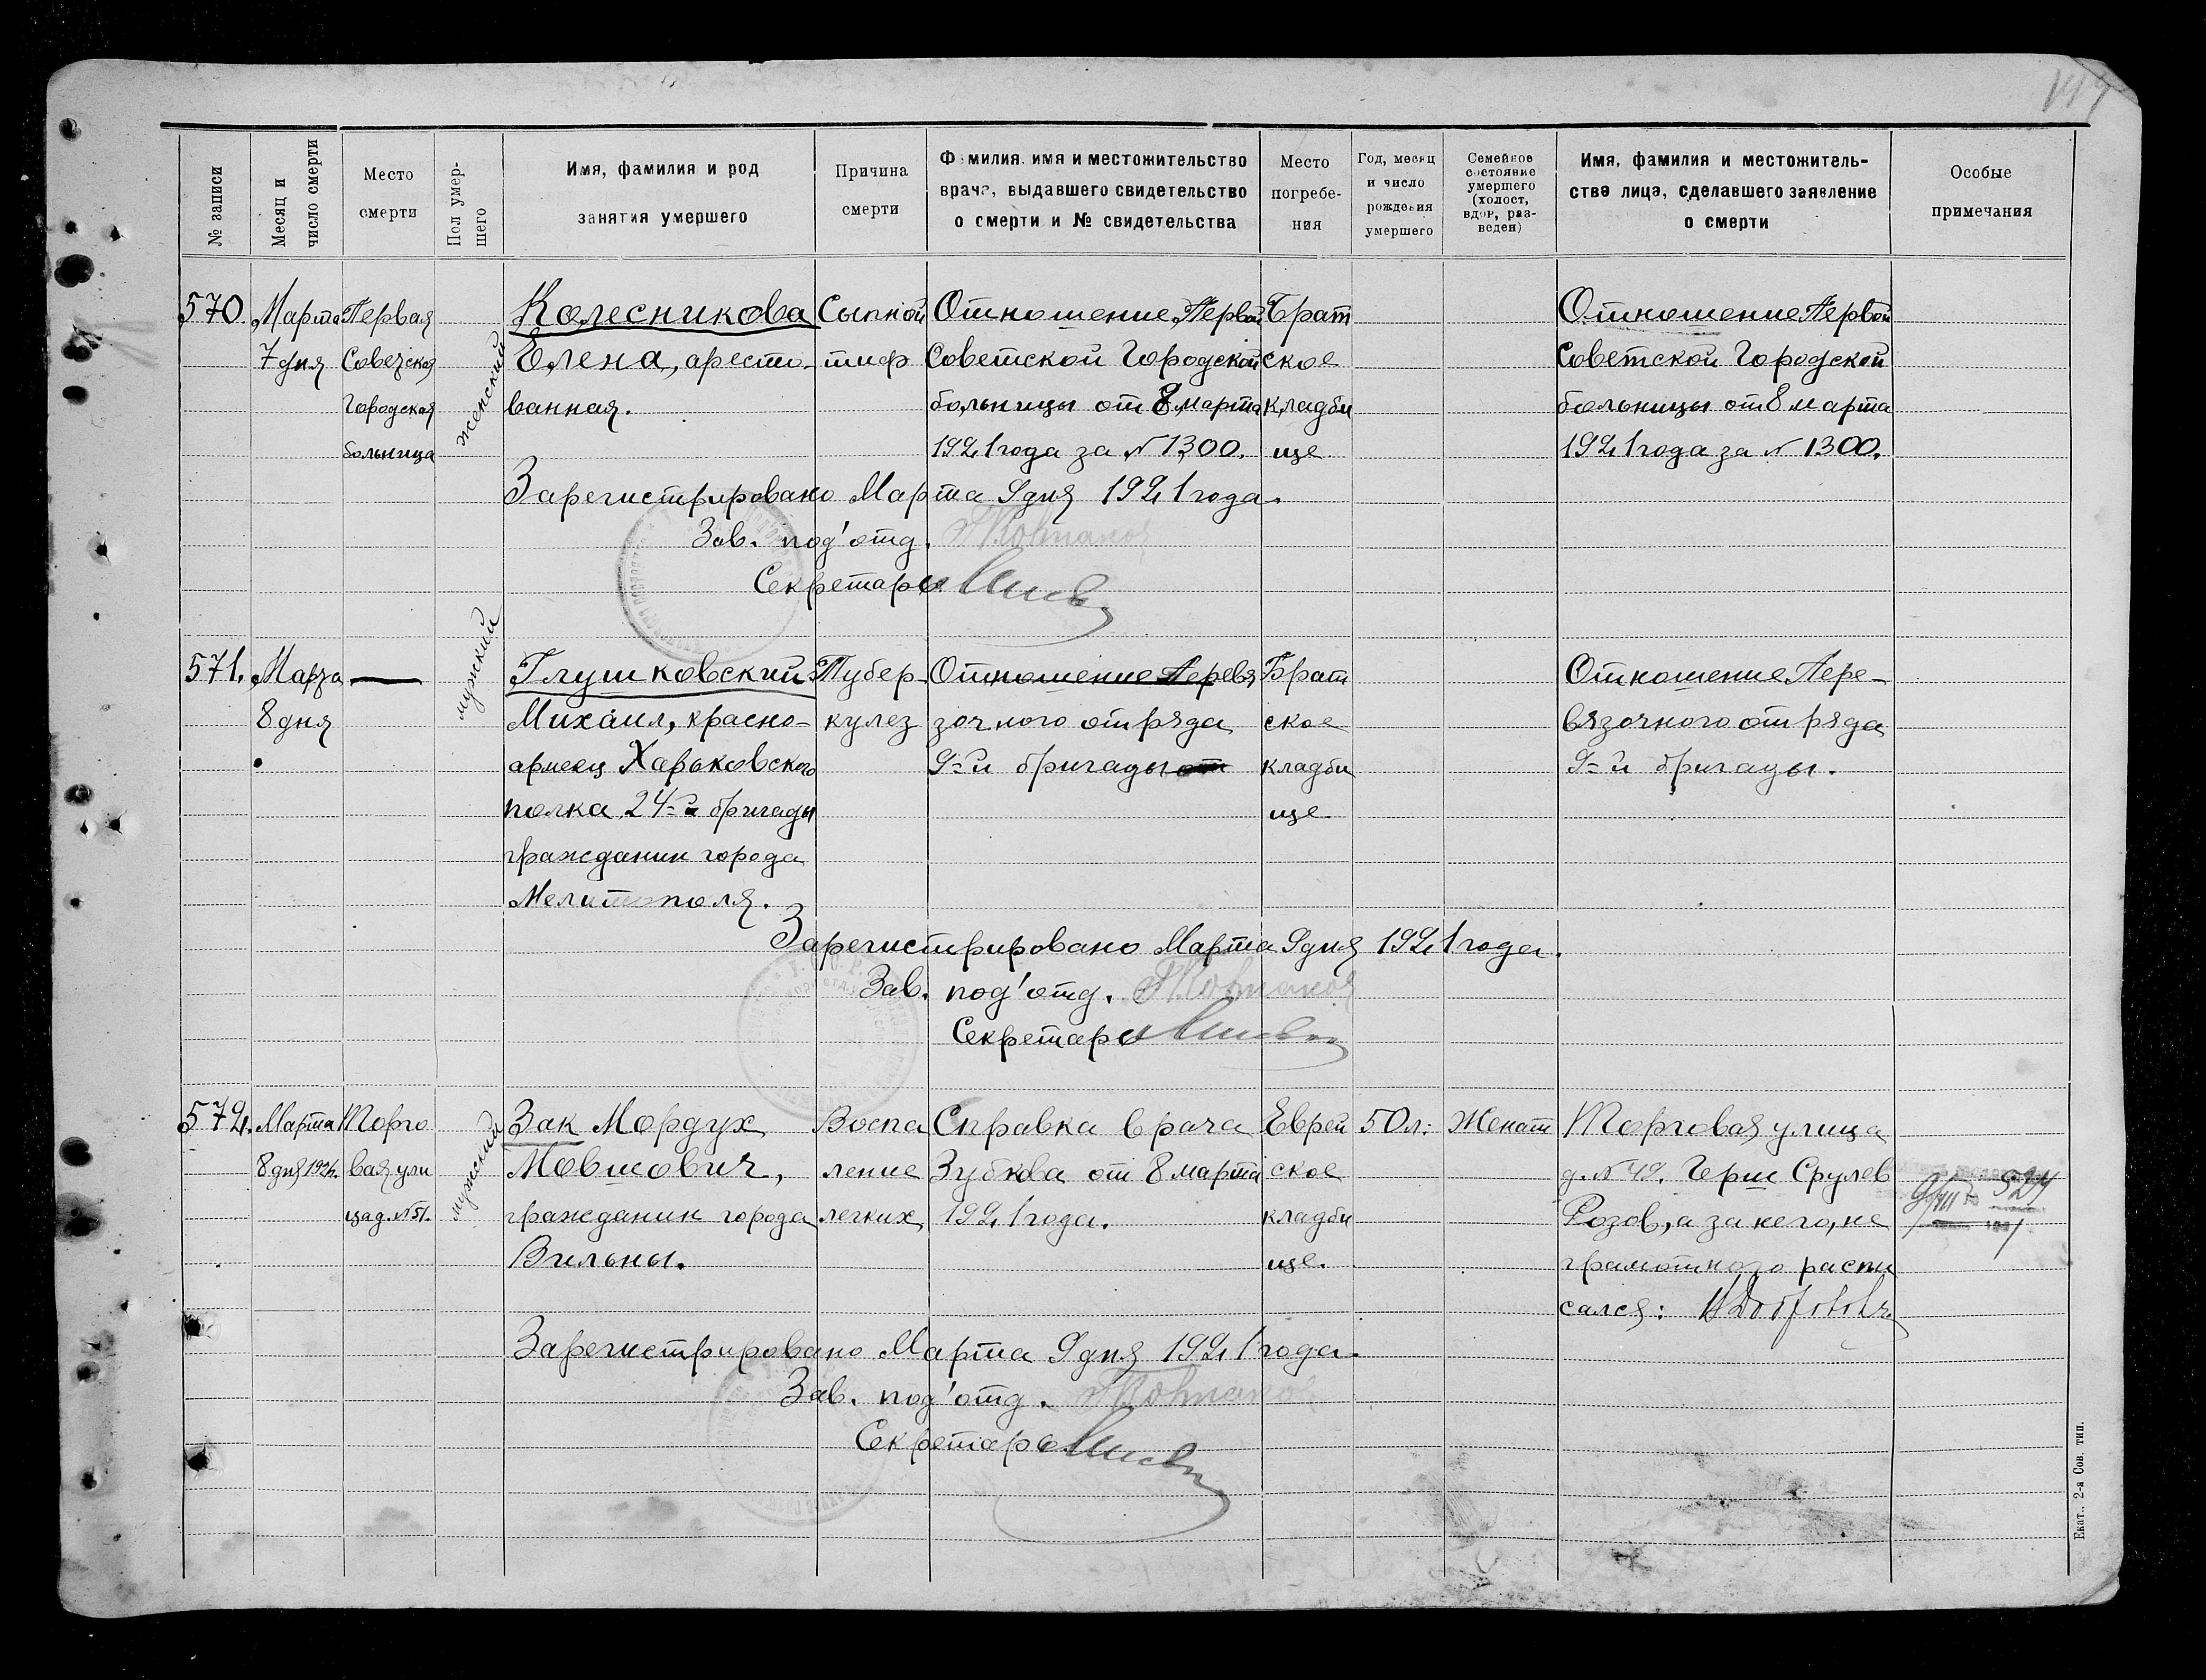 № записи
Месяц и
число смерти
Место
смерти
Пол умер-
шего
Имя, фамилия и род
занятия умершего
Причина
смерти
Фамилия, имя и местожительство
врача, выдавшего свидетельство
о смерти и № свидетельства
Место
погребе-
ния
Год, месяц
и число
рождения
умершего
Семейное
состояние
умершего
(холост,
вдов, раз-
веден)
Имя, фамилия и местожитель-
ства лица, сделавшего заявление
о смерти
Особые
примечания
570.
Марта
7 дня
Первая
Советская
Городская
больница
женский
Колесникова
Елена, аресто-
ванная.
Сыпной
тиф
Отношение Первой
Советской Городской
больницы от 8 марта
1921 года за № 1300.
Брат
ское
кладби
ще
Отношение Первой
Советской Городской
больницы от 8 марта
1921 года за № 1300.
Зарегистрировано Марта 9 дня 1921 года.
Зав. под'отд.
Секретарь
571.
Марта
8 дня
мужский
Глушковский
Михаил, красно-
армеец Харьковского
полка 24-й бригады
гражданин города
Мелитополя.
Тубер-
кулез
Отношение Перевя
зочного отряда
9-й бригады от
Брат
ское
кладби
ще
Отношение Пере-
вязочного отряда
9-й бригады.
Зарегистрировано Марта 9 дня 1921 года.
Зав. под'отд.
Секретарь
572.
Марта
8 дня 1921г.
Торго
вая ули
ца д. № 51.
мужский
Зак Мордух
Мовшович,
гражданин города
Вильны.
Воспа
ление
легких
Справка врача
Зубкова от 8 марта
1921 года.
Еврей
ское
кладби
ще.
50 л.
Женат
Торговая улица
д. № 49. Герш Срулев
Розов, а за него, не
грамотного распи
сался:
Зарегистрировано Марта 9 дня 1921 года.
Зав. под'отд.
Секретарь
Екат., 2-я Сов. тип.